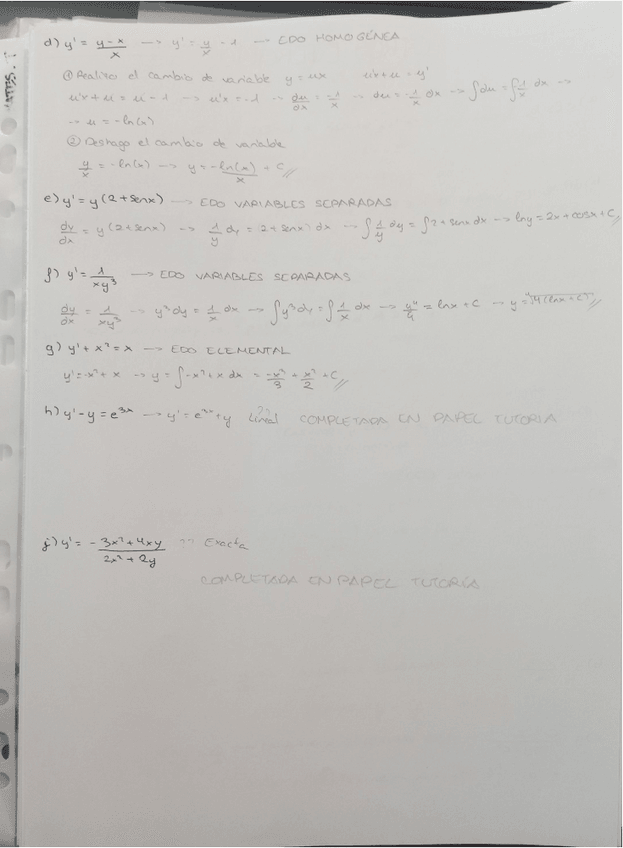 d) y' = (y-x)/x → y' = y/x - 1 → EDO HOMOGÉNEA
① Realizo el cambio de variable y = ux u'x + u = y'
u'x + u = u - 1 → u'x = -1 → du/dx = -1/x → du = -1/x dx → ∫du = ∫-1/x dx →
→ u = -ln(x)
② Deshago el cambio de variable
y/x = -ln(x) → y = -ln(x)/x + C //
e) y' = y(2+senx) → EDO VARIABLES SEPARADAS
dy/dx = y(2+senx) → 1/y dy = 2+senx dx → ∫1/y dy = ∫2+senx dx → lny = 2x + cosx + C //
f) y' = 1/(xy³) → EDO VARIABLES SEPARADAS
dy/dx = 1/(xy³) → y³dy = 1/x dx → ∫y³dy = ∫1/x dx → y⁴/4 = lnx + C → y = ⁴√(4(lnx+C)) //
g) y' + x² = x → EDO ELEMENTAL
y' = -x² + x → y = ∫-x²+x dx = -x³/3 + x²/2 + C //
h) y' - y = e^(3x) → y' = e^(3x) + y ¿? Lineal COMPLETADA EN PAPEL TUTORIA
j) y' = -(3x²+4xy)/(2x²+2y) ?? Exacta
COMPLETADA EN PAPEL TUTORÍA